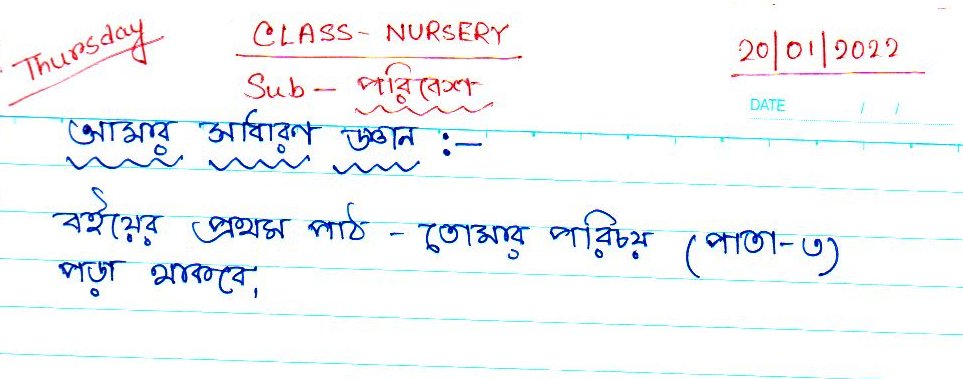 Thursday
CLASS - NURSERY
20/01/2022
Sub - পরিবেশ
DATE / /
আমার সাধারণ জ্ঞান :-
বইয়ের প্রথম পাঠ - তোমার পরিচয় (পাতা-৩)
পড়া থাকবে,